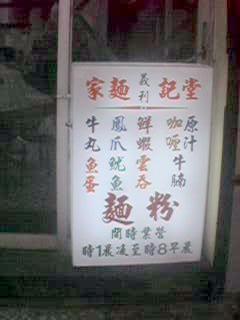 堂記義利麵家
原汁
咖喱
牛腩
鮮蝦雲吞
鳳爪魷魚
牛丸魚蛋
粉麵
營業時間
晨早8時至凌晨1時